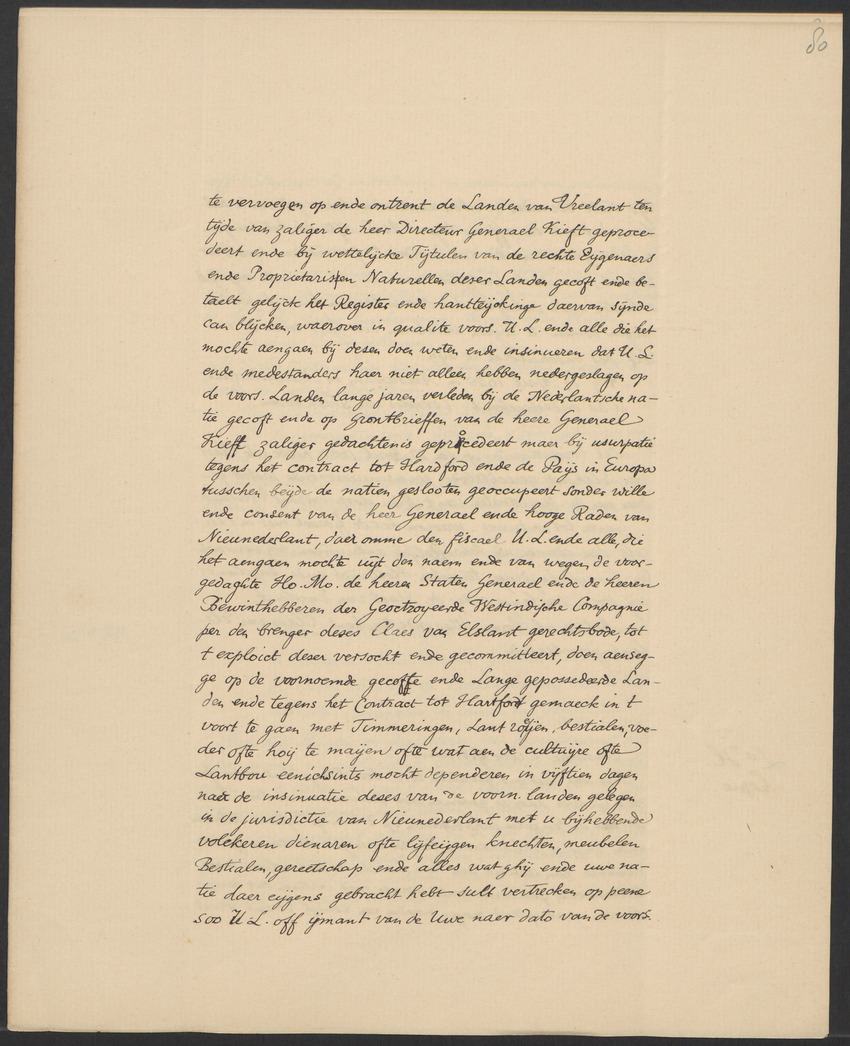 80
te vervoegen op ende ontrent de Landen van Vreelant ten
tyde van zaliger de heer Directeur Generael Kieft geproce-
deert ende bij wettelijcke Tijtulen van de rechte Eygenaers
ende Proprietarissen Naturellen deser Landen gecoft ende be-
taelt gelijck het Register ende hantteijckinge daervan sijnde
can blijcken, waerover in qualite voors. U.L. ende alle die het
mochte aengaen bij desen doen weten ende insinueren dat U.L.
ende medestanders haer niet alleen hebben nedergeslagen op
de voors. Landen lange jaren verleden bij de Nederlantsche na-
tie gecoft ende op Grontbrieffen van de heere Generael
Kieft zaliger gedachtenis geprocedeert maer bij usurpatie
tegens het contract tot Hardford ende de Pays in Europa
tusschen beijde de natien geslooten geoccupeert sonder wille
ende consent van de heer Generael ende hooge Raden van
Nieunederlant, daer omme den fiscael U.L. ende alle, die
het aengaen mochte uijt den naem ende van wegen de voor-
gedaghte Ho. Mo. de heeren Staten Generael ende de heeren
Bewinthebberen der Geoctroyeerde Westindische Compagnie
per den brenger deses Claes van Elslant gerechtsbode, tot
t exploict deser versocht ende gecommitteert, doen aenseg-
ge op de voornoemde gecoffte ende Lange gepossedeerde Lan-
den ende tegens het Contract tot Hartford gemaeck in t
voort te gaen met Timmeringen, Lant roijen, bestialen, voe-
der ofte hoij te maijen ofte wat aen de cultuijre ofte
Lantbou eenichsints mocht dependeren in vijftien dagen
naer de insinuatie deses van de voorn. landen gelegen
in de jurisdictie van Nieunederlant met u bijhebbende
volckeren dienaren ofte lijfeijgen knechten, meubelen
Bestialen, gereetschap ende alles wat ghij ende uwe na-
tie daer eijgens gebracht hebt sult vertrecken op peene
soo U.L. off ijmant van de Uwe naer dato van de voors.